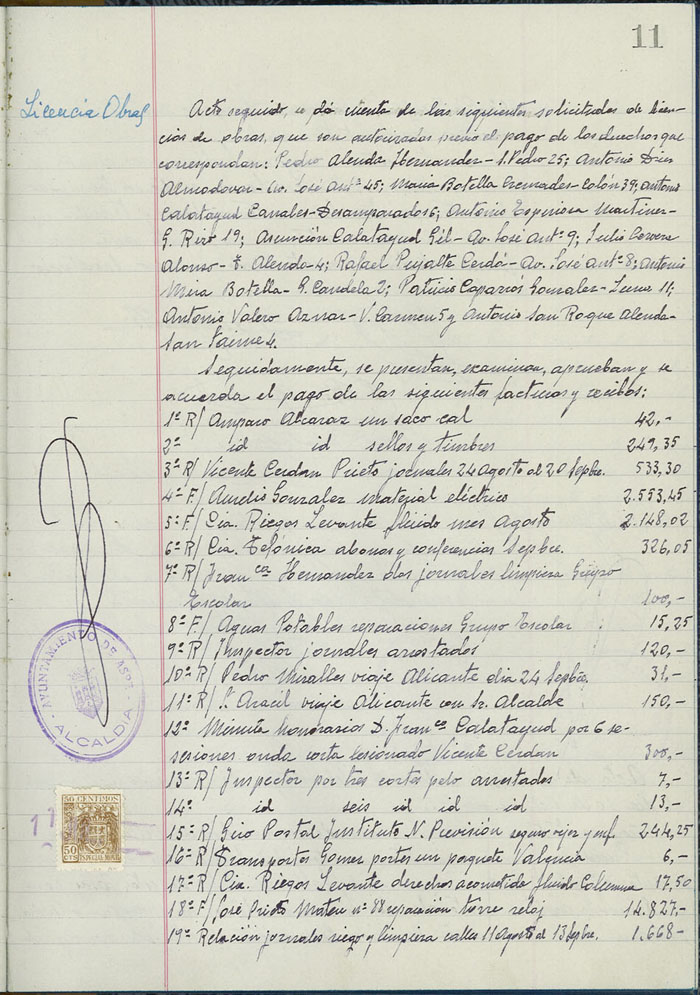 11
Licencia Obras
Acto seguido, se dá cuenta de las siguientes solicitudes de licen-
cias de obras, que son autorizadas previo el pago de los derechos que
correspondan: Pedro Alenda Hernandez - S. Pedro 25; Antonio Dies
Almodovar - Av. José Antº 45; Maria Botella Cremades - Colón 39; Antonio
Calatayud Canales - Desamparados 6; Antonio Espinosa Martinez -
G. Riro 19; Asunción Calatayud Gil - Av. José Antº 9; Julio Cervera
Alonso - T. Alenda 4; Rafael Pujalte Cerdá - Av. José Antº 8; Antonio
Mira Botella - G. Candela 2; Patricio Caparros Gonzalez - 11;
Antonio Valero Aznar - V. Carmen 5 y Antonio San Roque Alenda -
San Jaime 4.
Seguidamente, se presentan, examinan, aprueban y se
acuerda el pago de las siguientes facturas y recibos:
1º R/ Amparo Alcaraz un saco cal 42,-
2º id id sellos y timbres 249,35
3º R/ Vicente Cerdan Prieto jornales 24 Agosto al 20 Sepbre. 533,30
4º F/ Aurelio Gonzalez material eléctrico 2.553,45
5º F/ Cia. Riegos Levante flúido mes Agosto 2.148,02
6º R/ Cia. Telefónica abonos y conferencias Sepbre. 326,05
7º R/ Franca Hernandez dos jornales limpieza Grupo
Escolar 100,-
8º F/ Aguas Potables reparaciones Grupo Escolar 15,25
9º R/ Inspector jornales arrestados 120,-
10º R/ Pedro Miralles viaje Alicante dia 24 Sepbre. 31,-
11º R/ Aracil viaje Alicante con Sr. Alcalde 150,-
12º Minuta honorarios D. Franco Calatayud por 6 se-
sesiones onda corta lesionado Vicente Cerdan 300,-
13º R/ Inspector por tres cortes pelo arrestados 7,-
14º id seis id id id 13,-
15º R/ Giro Postal Instituto N. Previsión seguro vejez y enf. 244,25
16º R/ Transportes Gomez portes un paquete Valencia 6,-
17º R/ Cia. Riegos Levante derechos acometida flúido 17,50
18º F/ José Prieto Mateu nº 88 reparación torre reloj 14.827,-
19º Relación jornales riego y limpieza calles 11 Agosto al 13 Sepbre. 1.668-
AYUNTAMIENTO DE ASPE
ALCALDIA
50 CENTIMOS
50
CTS
ESPECIAL MOVIL
11